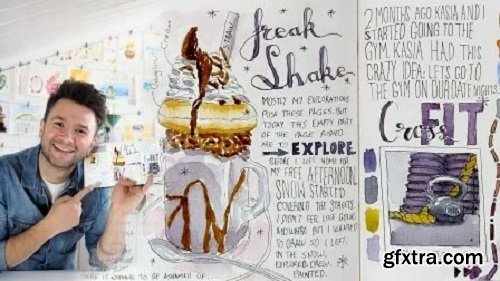 Freak
Shake
MOSTLY MY EXPLORATIONS
PUSH THESE PAGES. BUT
TODAY THIS EMPTY PART
OF THE PAGE PUSHED
ME TO
EXPLORE.
BEFORE I LEFT HOME FOR
MY FREE AFTERNOON
SNOW STARTED
COVERING THE STREETS.
I DIDN'T FEEL LIKE GOING
ANYWHERE BUT I WANTED
TO DRAW SO I LEFT.
IN THE SNOW,
EXPLORED, DREW,
PAINTED.
THERE IS NOTHING TO BE ASHAMED OF...
2 MONTHS AGO KASIA AND I
STARTED GOING TO THE
GYM. KASIA HAD THIS
CRAZY IDEA: LETS GO TO
THE GYM ON OUR DATE NIGHTS.
Cross
FIT
gfxtra.com